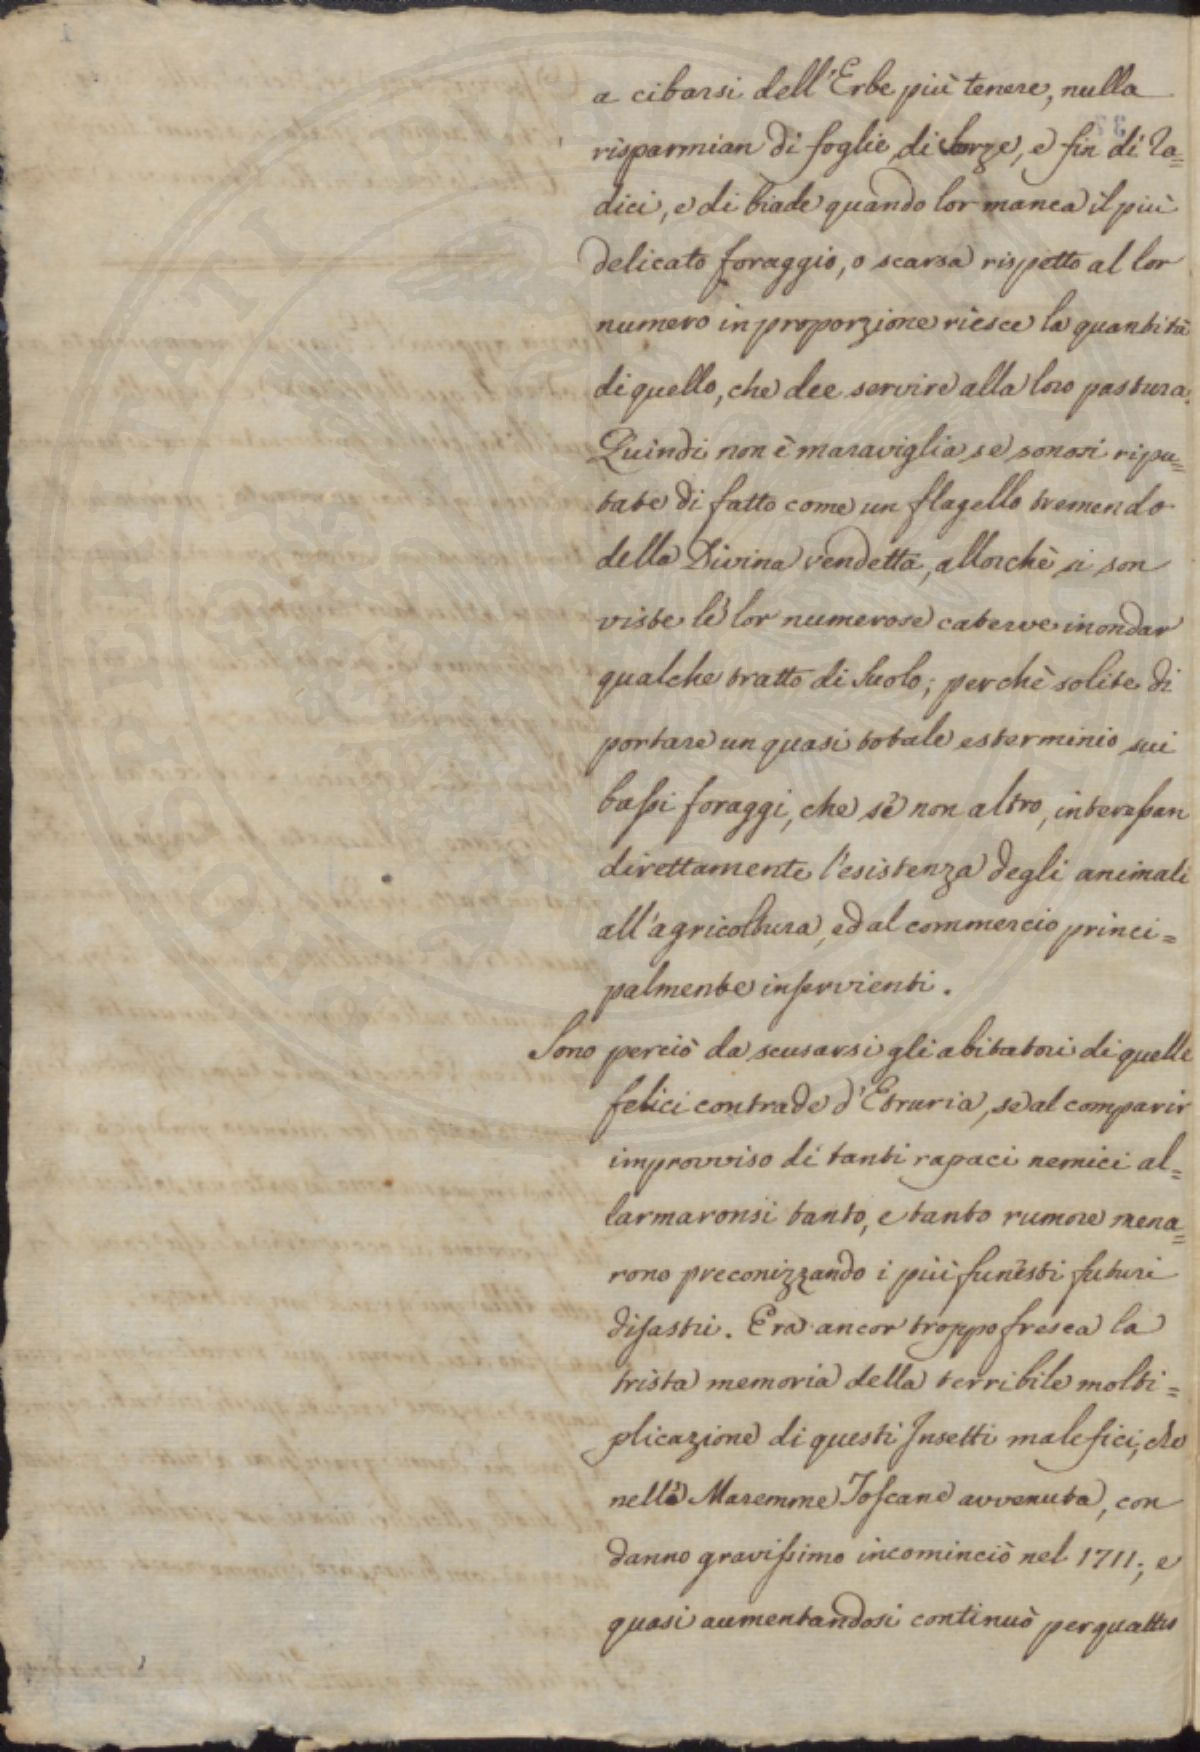 a cibarsi dell'Erbe più tenere, nulla
risparmian di foglie, di Scorze, e fin di Ra=
dici, e di biade quando lor manca il più
delicato foraggio, o scarsa rispetto al lor
numero in proporzione riesce la quantità
di quello, che dee servire alla loro pastura.
Quindi non è maraviglia se sonosi ripu=
tate di fatto come un flagello tremendo
della Divina vendetta, allorchè si son
viste le lor numerose caterve inondar
qualche tratto di Suolo; perchè solite di
portare un quasi totale esterminio sui
bassi foraggi, che se non altro, interessan
direttamente l'esistenza degli animali
all'agricoltura, ed al commercio princi=
palmente inservienti.
Sono perciò da scusarsi gli abitatori di quelle
felici contrade d'Etruria, se al comparir
improvviso di tanti rapaci nemici al=
larmaronsi tanto, e tanto rumore mena=
rono preconizzando i più funesti futuri
disastri. Era ancor troppo fresca la
trista memoria della terribile molti=
plicazione di questi Insetti malefici, che
nelle Maremme Toscane avvenuta, con
danno gravissimo incominciò nel 1711; e
quasi aumentandosi continuò per quattro